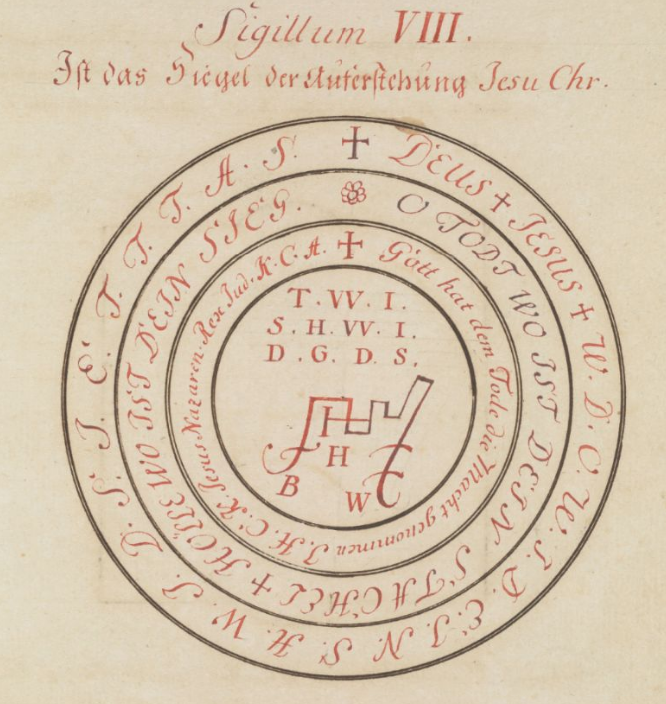 Sigillum VIII.
Ist das Siegel der Auferstehung Jesu Chr.
✝ DEUS ✝ JESUS ✝ W. D. O. W. I. D. E. I. N. S. H. W. I. D. S. I. E. T. T. T. A. S.
O TODT WO IST DEIN STACHEL ✝ HÖLLE WO IST DEIN SIEG.
✝ Gott hat dem Tode die Macht genommen J. H. C. K. Jesus Nazaren. Rex Jud. K. C. A.
T. W. I.
S. H. W. I.
D. G. D. S.
I
H
B W